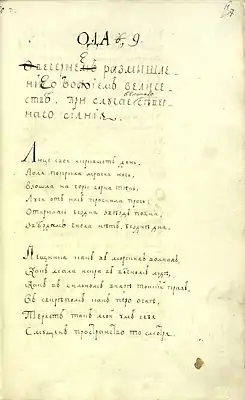 ОДА 9.
Вечернее размышле-
ние О Божіемъ величе-
ствѣ, при случаѣ великаго сѣвер-
наго сіянія.
Лице свое скрываетъ день,
Поля покрыла мрачна ночь,
Взошла на горы чорна тѣнь,
Лучи отъ насъ прогнала прочь.
Открылась бездна звѣздъ полна,
Звѣздамъ числа нѣтъ, безднѣ дна.
Песчинка какъ въ морскихъ волнахъ,
Какъ мала искра въ вѣчномъ льдѣ,
Какъ въ сильномъ вихрѣ тонкій прахъ,
Въ свирѣпомъ какъ перо огнѣ,